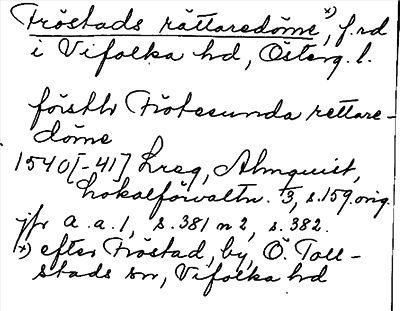 Fröstads rättaredöme x), f.rd
i Vifolka hd, Österg. l.
förstbr Frötesunda rettare-
döme
1540[-41] Lräg, Almquist,
Lokalförvaltn. 1/3, s.159.orig.
jfr a.a.1, s.381 n 2, s.382.
x) efter Fröstad, by, Ö. Toll-
stads sn, Vifolka hd